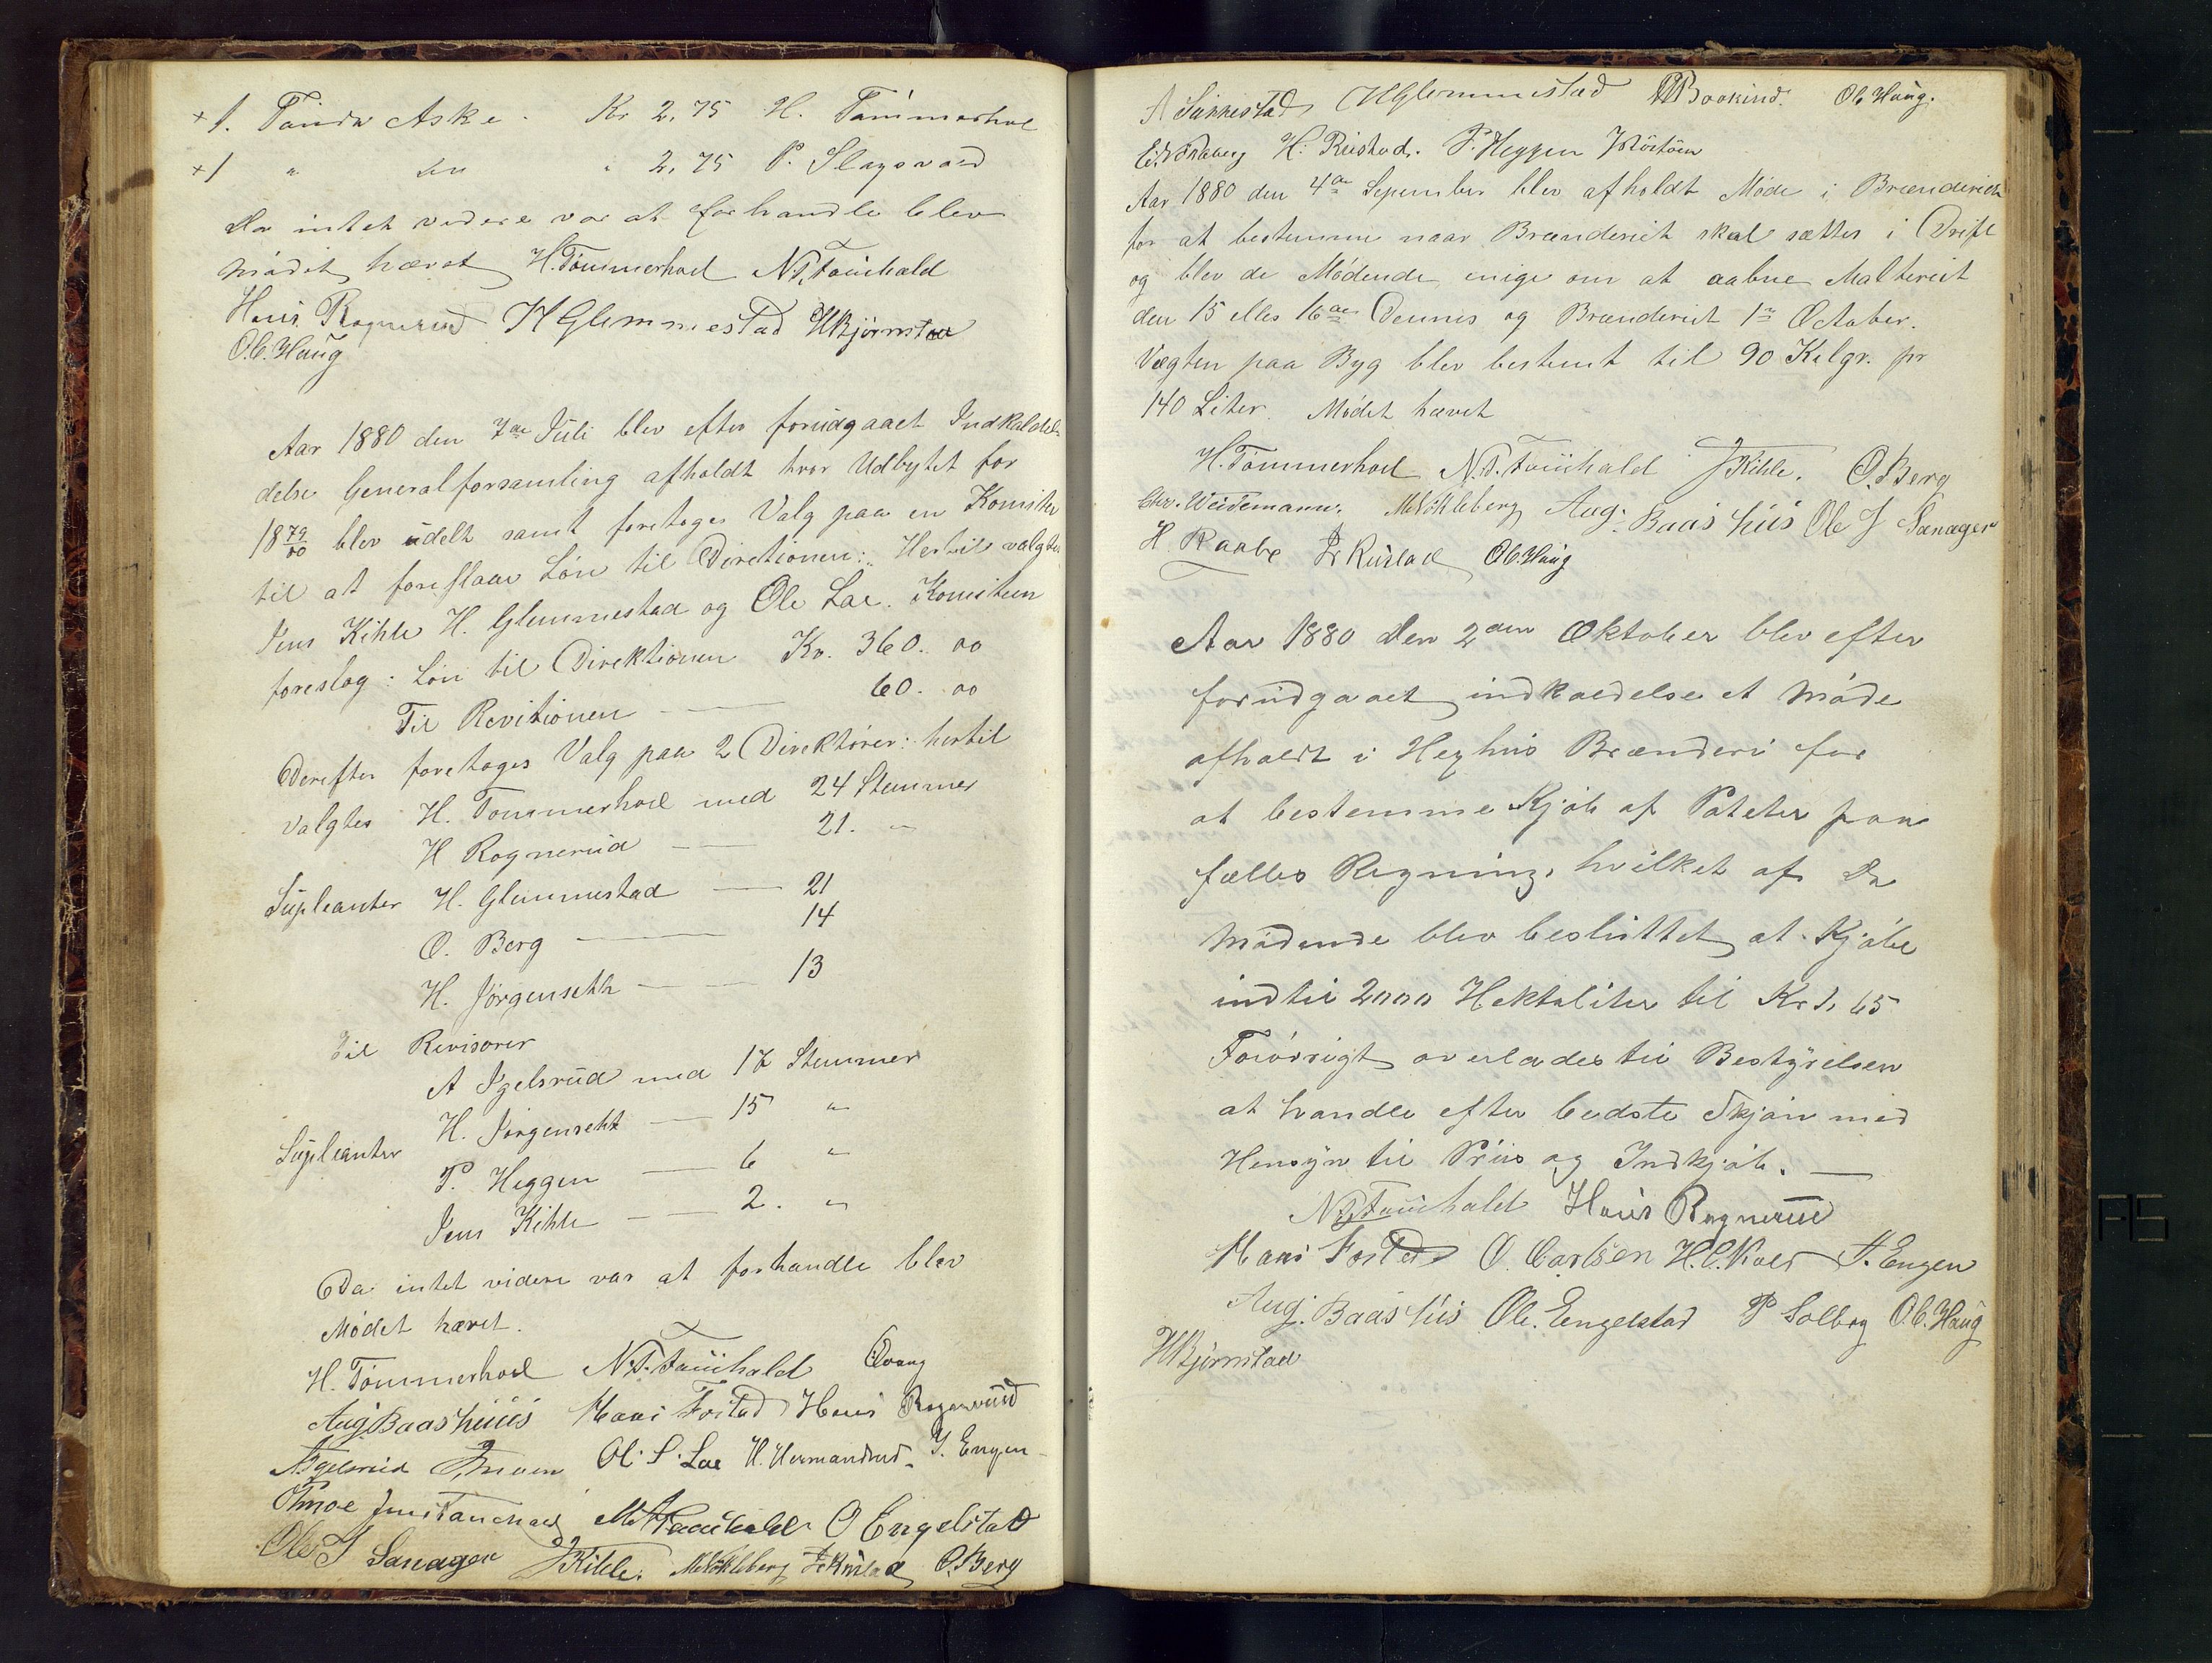 +1. Tønde Aske. Kr 2,75 H. Tømmerhol
+1 " do " 2,75 P. Slagsvold
Da intet videre var at forhandle blev
mødet hævet H. Tømmerhoel N. T. Fauchald
Hans Rognerud H Glemmestad HBjørnstad
O.C. Haug
Aar 1880 den 7de Juli blev efter forudgaaet Indkaldel-
delse Generalforsamling afholdt hvor Udbytet for
18 79/80 blev udelt samt foretoges Valg paa en Komitee
til at foreslaae Løn til Direktionen: Hertil valgtes
Jens Kihle H. Glemmestad og Ole Lae. Komiteen
foreslog: Løn til Direktionen Kr. 360. 00
Til Revitionen — 60. 00
Derefter foretoges Valg paa 2 Direktører: hertil
valgtes H. Tømmerhoel med 24 Stemmer
H Rognerud — 21. "
Supleanter H. Glemmestad — 21
O. Berg — 14
H. Jørgenseth — 13
Til Revisorer
A Igelsrud med 17 Stemmer
H. Jørgenseth — 15 "
Supleanter P. Heggen — 6 "
Jens Kihle — 2. "
Da intet videre var at forhandle blev
Mødet hævet.
H. Tømmerhoel N. T. Fauchald
Aug Baashuus Hans Forstad Hans Rognerud
A Igelsrud Ol. S. Lae H. Hermandrud. J. Engen
Jens Fauchald Fauchald O Engelstad
Ole J Sanager JKihle. MØkleberg O. Berg
HGlemmestad Ob Haug.
H. Rustad. P. Heggen
Aar 1880 den 4de Sepember blev afholdt Møde i Brænderiet
for at bestemme naar Brænderiet skal sættes i Drift
og blev de Mødende enige om at aabne Malteriet
den 15 elles 16de Dennes og Brænderiet 1ste October.
Vægten paa Byg blev bestemt til 90 Kilgr. pr
140 Liter. Mødet hævet
H. Tømmerhoel N. T. Fauchald JKihle. O. Berg
Chr. Weidemann. MØkleberg Aug. Baashuus Ole J Sanager
H. Raabe O.C. Haug
Aar 1880 den 2den Oktober blev efter
forudgaaet indkaldelse et Møde
afholdt i Heghuus Brænderi for
at bestemme Kjøb af Poteter paa
fælles Regning, hvilket af De
Mødende blev besluttet at Kjøbe
indtil 2000 Hektoliter til Kr 1,65
Forøvrigt overlades til Bestyrelsen
at handle efter bedste Skjøn med
Hensyn til Priis og Indkjøb. —
N. T. Fauchald Hans Rognerud
Hans Forstad O. Carlsen H. C. Kold J. Engen
Aug. Baashuus Ole. Engelstad P Solberg O.C. Haug
HBjørnstad